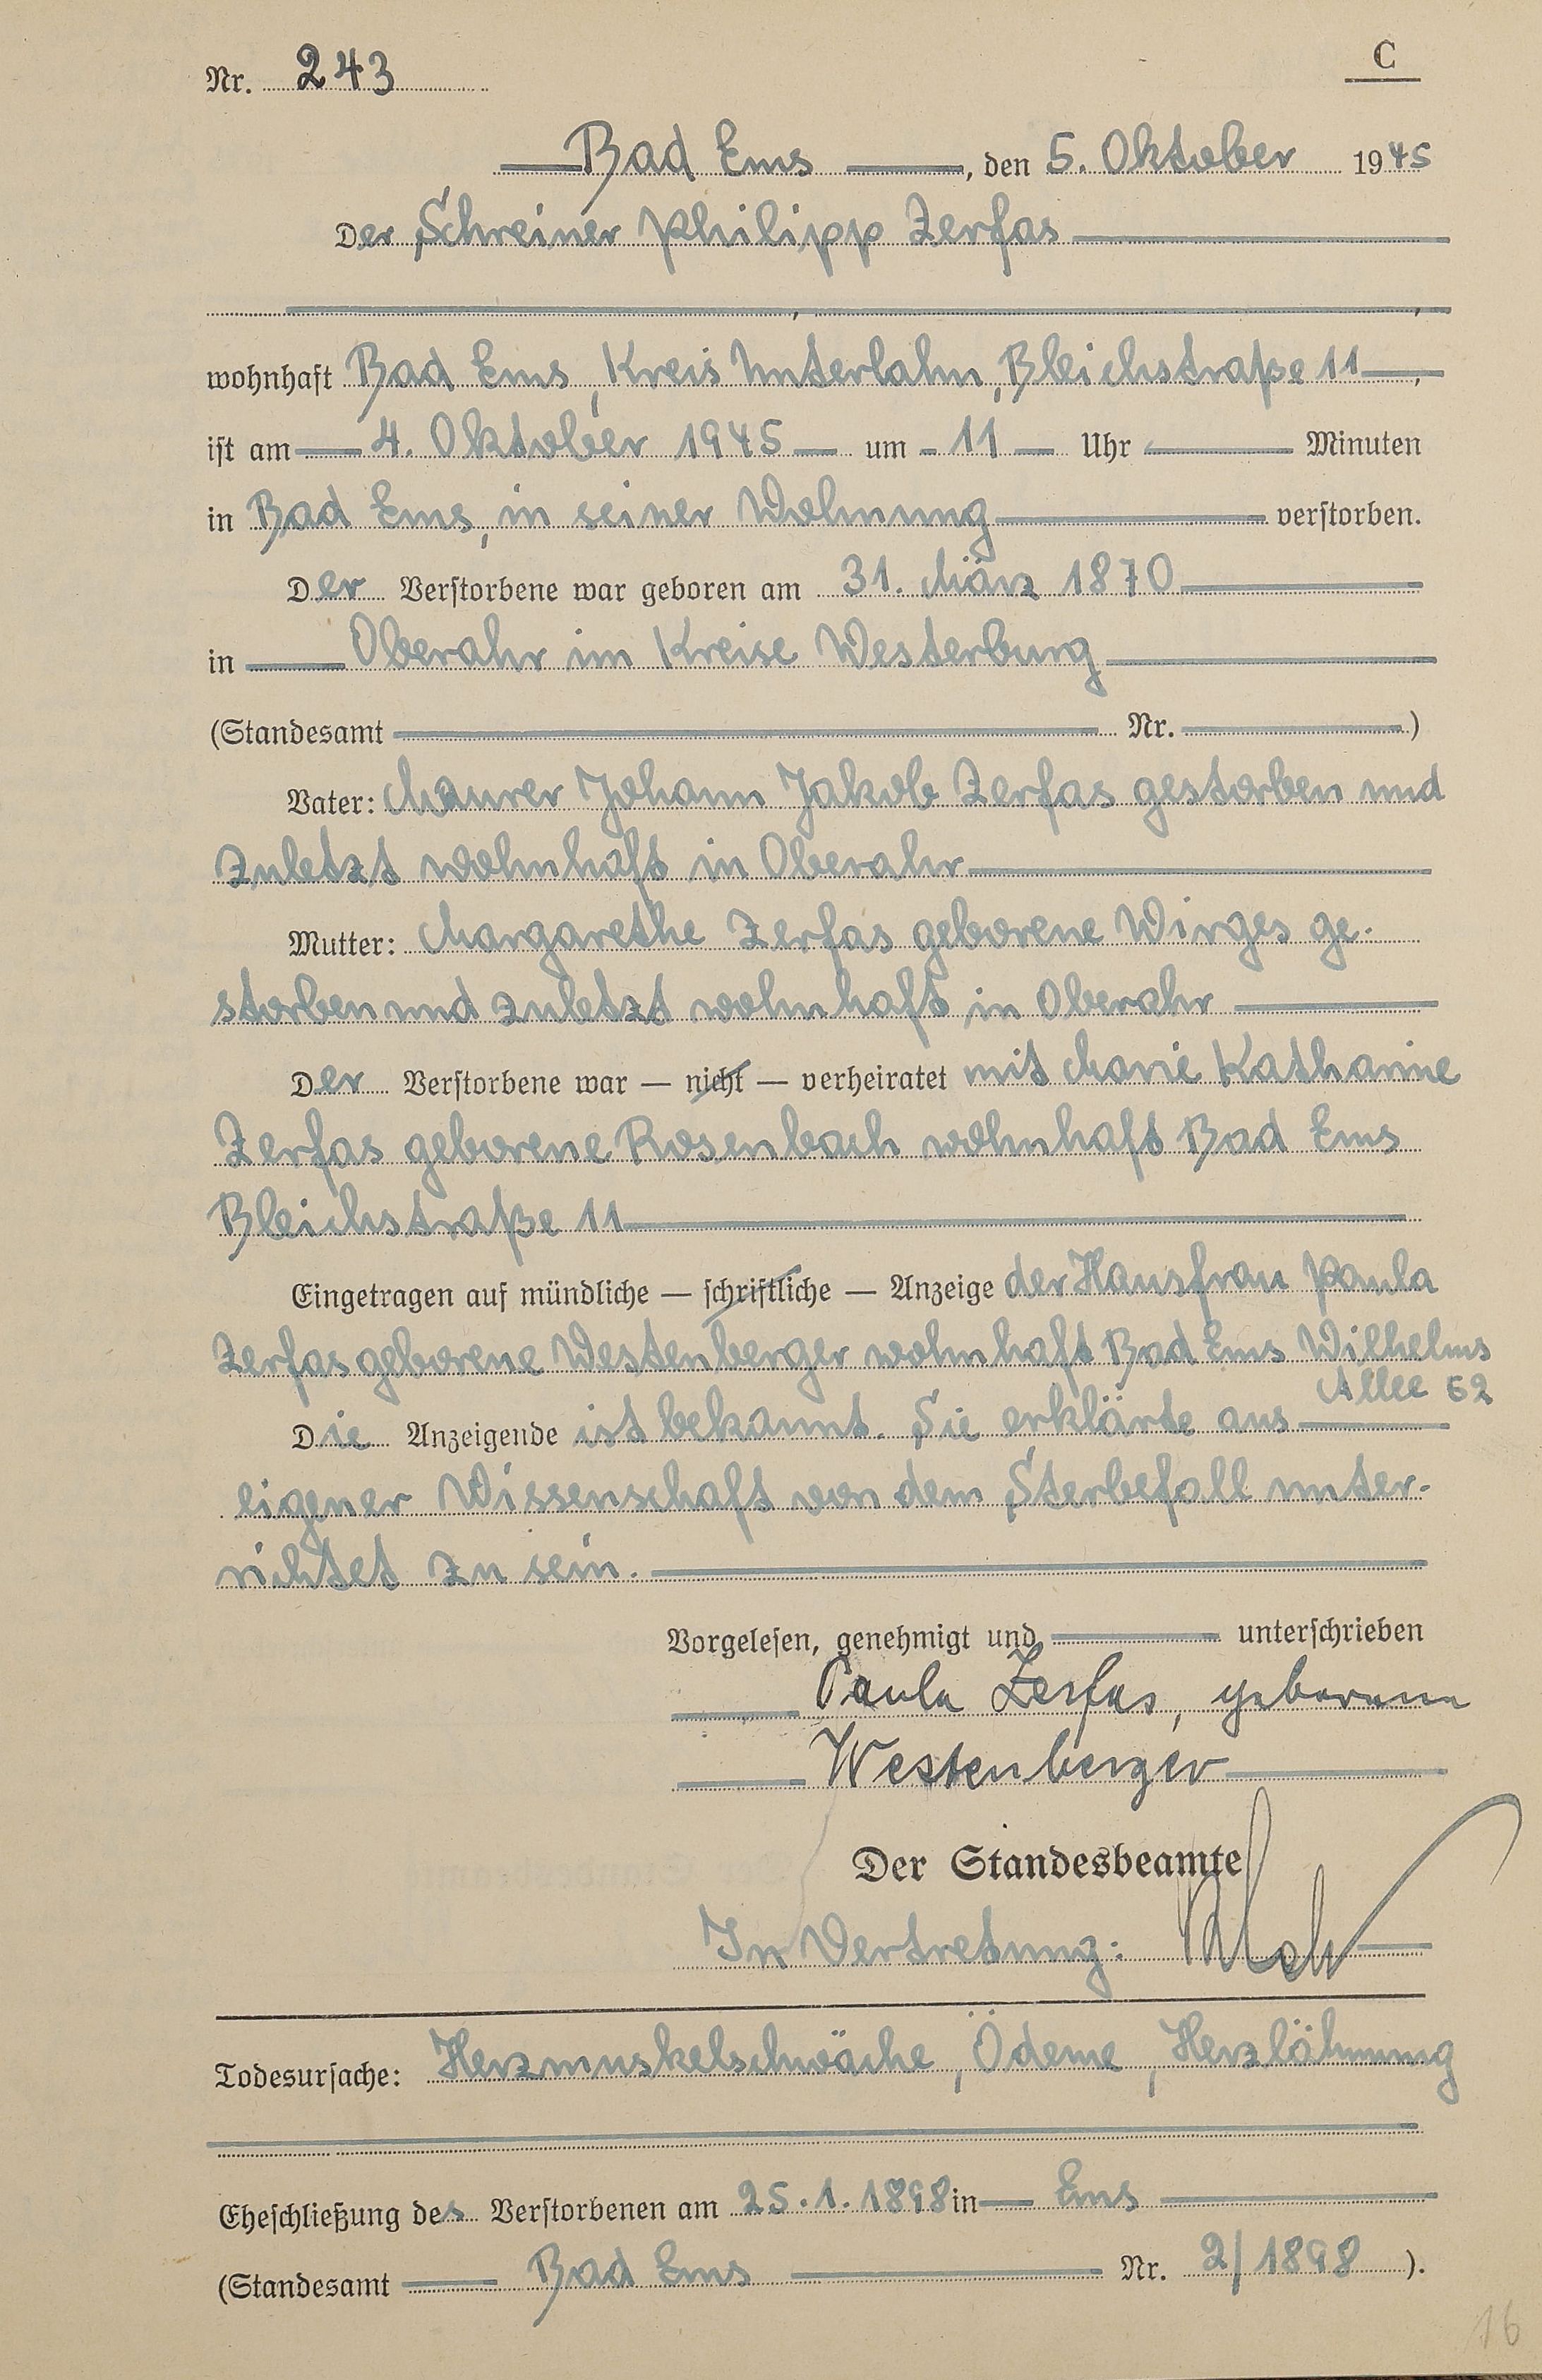 Nr. 243
C
Bad Ems, den 5. Oktober 1945
Der Schreiner Philipp Zerfas
wohnhaft Bad Ems, Kreis Unterlahn, Bleichstraße 11,
ist am 4. Oktober 1945 um 11 Uhr Minuten
in Bad Ems, in seiner Wohnung verstorben.
Der Verstorbene war geboren am 31. März 1870
in Oberahr im Kreise Westerburg
(Standesamt Nr. )
Vater: Maurer Johann Jakob Zerfas gestorben und
zuletzt wohnhaft in Oberahr
Mutter: Margarethe Zerfas geborene Wirges ge-
storben und zuletzt wohnhaft in Oberahr
Der Verstorbene war — nicht — verheiratet mit Marie Katharine
Zerfas geborene Rosenbach wohnhaft Bad Ems
Bleichstraße 11
Eingetragen auf mündliche — schriftliche — Anzeige der Hausfrau Paula
Zerfas geborene Westenberger wohnhaft Bad Ems Wilhelms
Allee 62
Die Anzeigende ist bekannt. Sie erklärte aus
eigener Wissenschaft von dem Sterbefall unter-
richtet zu sein.
Vorgelesen, genehmigt und unterschrieben
Paula Zerfas, geborene
Westenberger
Der Standesbeamte
In Vertretung:
Todesursache: Herzmuskelschwäche, Ödeme, Herzlähmung
Eheschließung des Verstorbenen am 25.1.1898 in Ems
(Standesamt Bad Ems Nr. 2/1898 ).
16